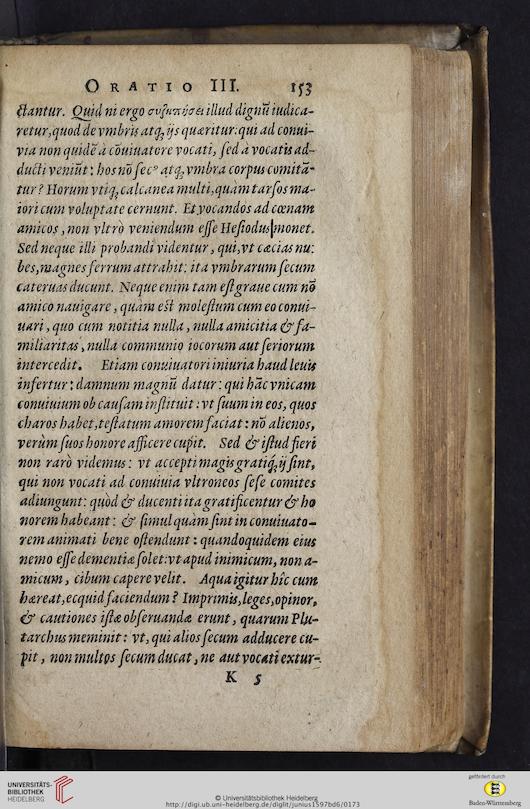 ORATIO III. 153
ctantur. Quid ni ergo συζητήσει illud dignũ iudica-
retur, quod de vmbris atq; ijs quæritur: qui ad conui-
via non quidẽ à cõuiuatore vocati, sed à vocatis ad-
ducti veniũt: hos nõ secꝰ atq; vmbra corpus comitã-
tur? Horum vtiq; calcanea multi, quàm tarsos ma-
iori cum voluptate cernunt. Et vocandos ad cœnam
amicos, non vltrò veniendum esse Hesiodus monet.
Sed neque illi probandi videntur, qui, vt cæcias nu:
bes, magnes ferrum attrahit: ita vmbrarum secum
cateruas ducunt. Neque enim tam est graue cum nõ
amico nauigare, quàm est molestum cum eo conui-
uari, quo cum notitia nulla, nulla amicitia & fa-
miliaritas, nulla communio iocorum aut seriorum
intercedit. Etiam conuiuatori iniuria haud leuis
infertur: damnum magnũ datur: qui hãc vnicam
conuiuium ob causam instituit: vt suum in eos, quos
charos habet, testatum amorem faciat: nõ alienos,
verùm suos honore afficere cupit. Sed & istud fieri
non rarò videmus: vt accepti magis gratiq; ij sint,
qui non vocati ad conuiuia vltroneos sese comites
adiungunt: quòd & ducenti ita gratificentur & ho
norem habeant: & simul quàm sint in conuiuato-
rem animati bene ostendunt: quandoquidem eius
nemo esse dementiæ solet: vt apud inimicum, non a-
micum, cibum capere velit. Aqua igitur hîc cum
hæreat, ecquid faciendum? Imprimis, leges, opinor,
& cautiones istæ obseruandæ erunt, quarum Plu-
tarchus meminit: vt, qui alios secum adducere cu-
pit, non multos secum ducat, ne aut vocati extur-
K 5
UNIVERSITÄTS-
BIBLIOTHEK
HEIDELBERG
© Universitätsbibliothek Heidelberg
http://digi.ub.uni-heidelberg.de/diglit/junius1597bd6/0173
gefördert durch
Baden-Württemberg